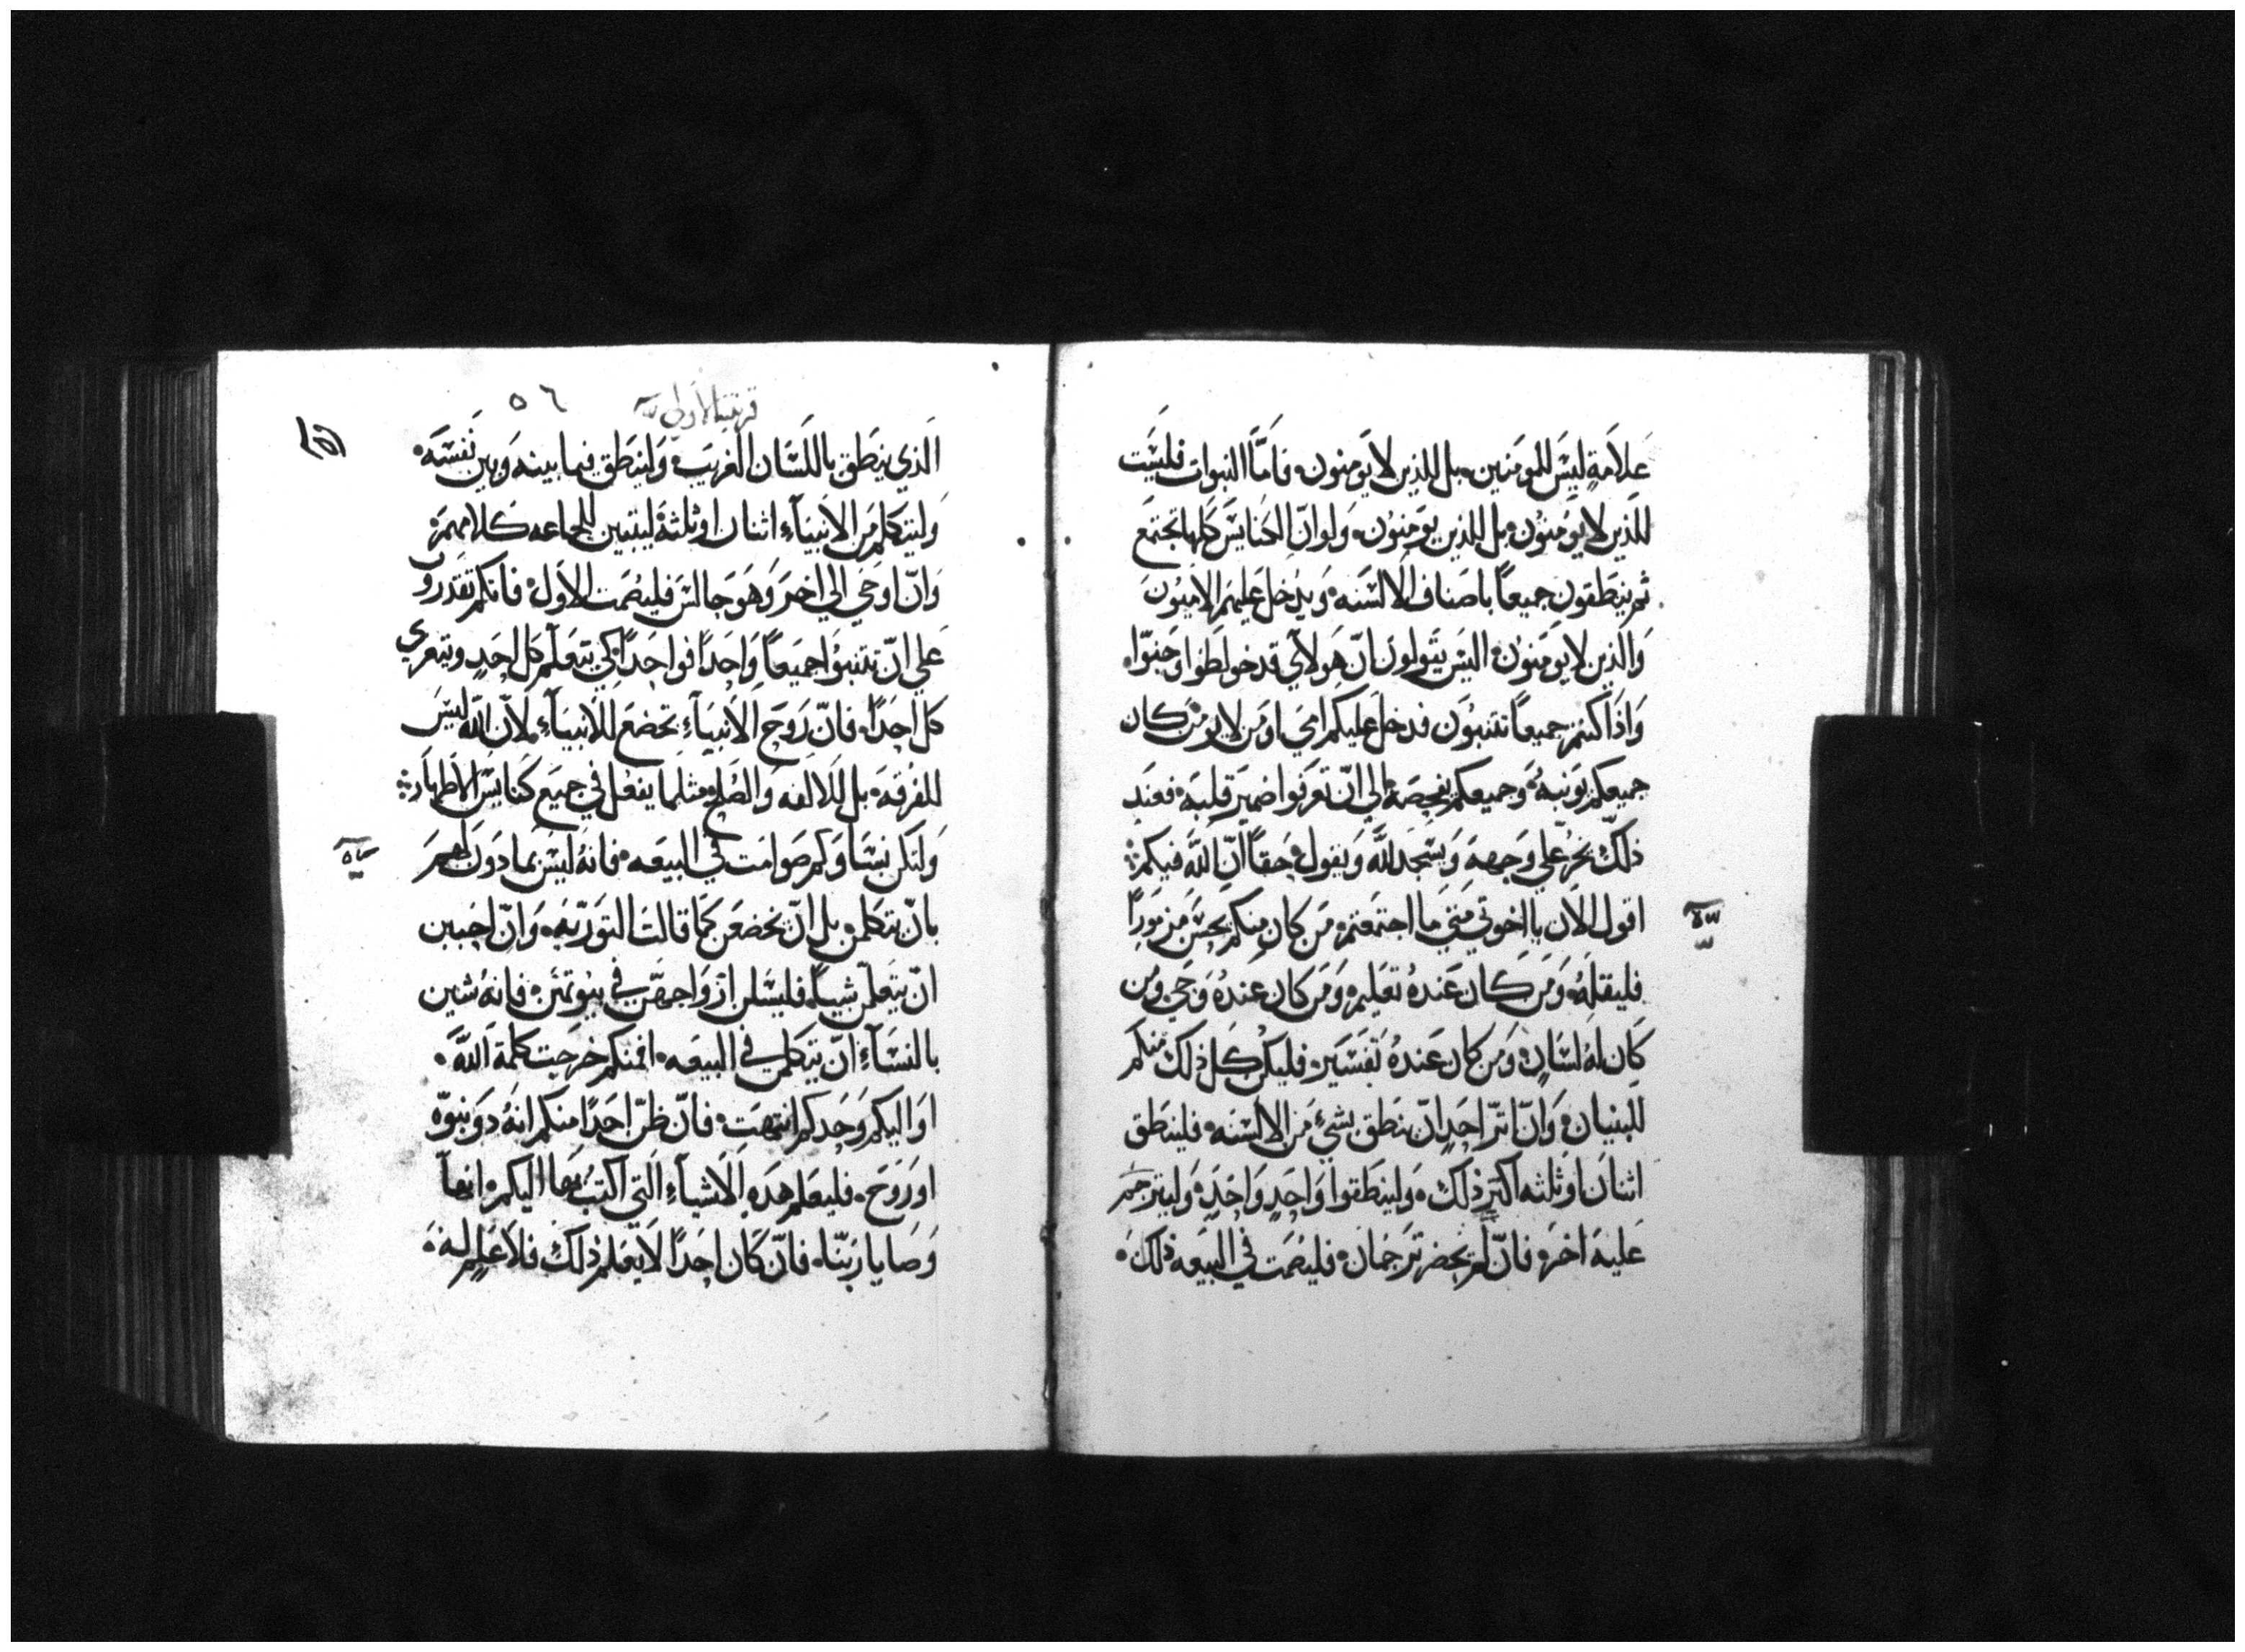 علامةٍ ليس للمومنين، بل للذين لا يومنون، فامّا النبوات فليست
للذين لا يومنون، بل للذين يومنون، ولو انّ الكنايس كلها تجتمع
ثم ينطقون جميعاً باصناف الالسنه، ويدخل عليهم الاميون
والذين لا يومنون، اليس يقولون انّ هولآي قد خولطوا وجنوّا،
واذا كنتم جميعاً تتنبون فدخل عليكم امي، او من لا يومن كان
جميعكم يوبنه، وجميعكم يفحصه، الي انّ تعرفوا ضمير قلبه، فعند
ذلك يخرّ علي وجهه ويسجد لله ويقول، حقاً انّ الله فيكم،
اقول الان يا اخوتي متي ما اجتمعتم، من كان منكم يحسن مزموراً
فليقله، ومن كان عنده تعليم، ومن كان عنده وحي، ومن
كان له لسان، ومن كان عنده تفسير، فليكن كل ذلك منكم
للبنيان، وانّ اثر احدٍ انّ ينطق بشيءٍ من الالسنه، فلينطق
اثنان او ثلثه اكثر ذلك، ولينطقوا واحدٍ واحدٍ، وليترجم
عليه اخر، فانّ لم يحضر ترجمان، فليصمت في البيعه ذلك،
٥٦
الذي ينطق باللسان الغريب، ولينطق فيما بينه وبين نفسه،
وليتكلم من الانبيآء اثنان او ثلثة ليتبين للجماعه كلامهم،
وانّ اوحي الي اخر وهو جالس فليصمت الاول، فانكم تقدرون
علي انّ تتنبوا جميعاً واحداً فواحداً، كي يتعلم كل احدٍ ويتعزي
كل احداً، فانّ روح الانبيآء تخضع للانبيآء، لانّ الله ليس
للفرقه، بل للالفه والصلح، مثلما يفعل في جميع كنايس الاطهار،
ولتكن نساوكم صوامت في البيعه، فانه ليس بماذون لهم
بانّ يتكلمن، بل انّ يخضعن كما قالت التوريه، وانّ احببن
ان يتعلمن شياً، فليسلن ازواجهنّ في بيوتهنّ، فانه شين
بالنسآء انّ يتكلمن في البيعه، افمنكم خرجت كلمة الله،
او اليكم وحدكم انتهت، فانّ ظنّ احداً منكم انه ذو نبوّه
او روح، فليعلم هذه الاشيآء التي اكتب بها اليكم، انها
وصايا ربنّا، فانّ كان احداً لا يعلم ذلك، فلا علم له،